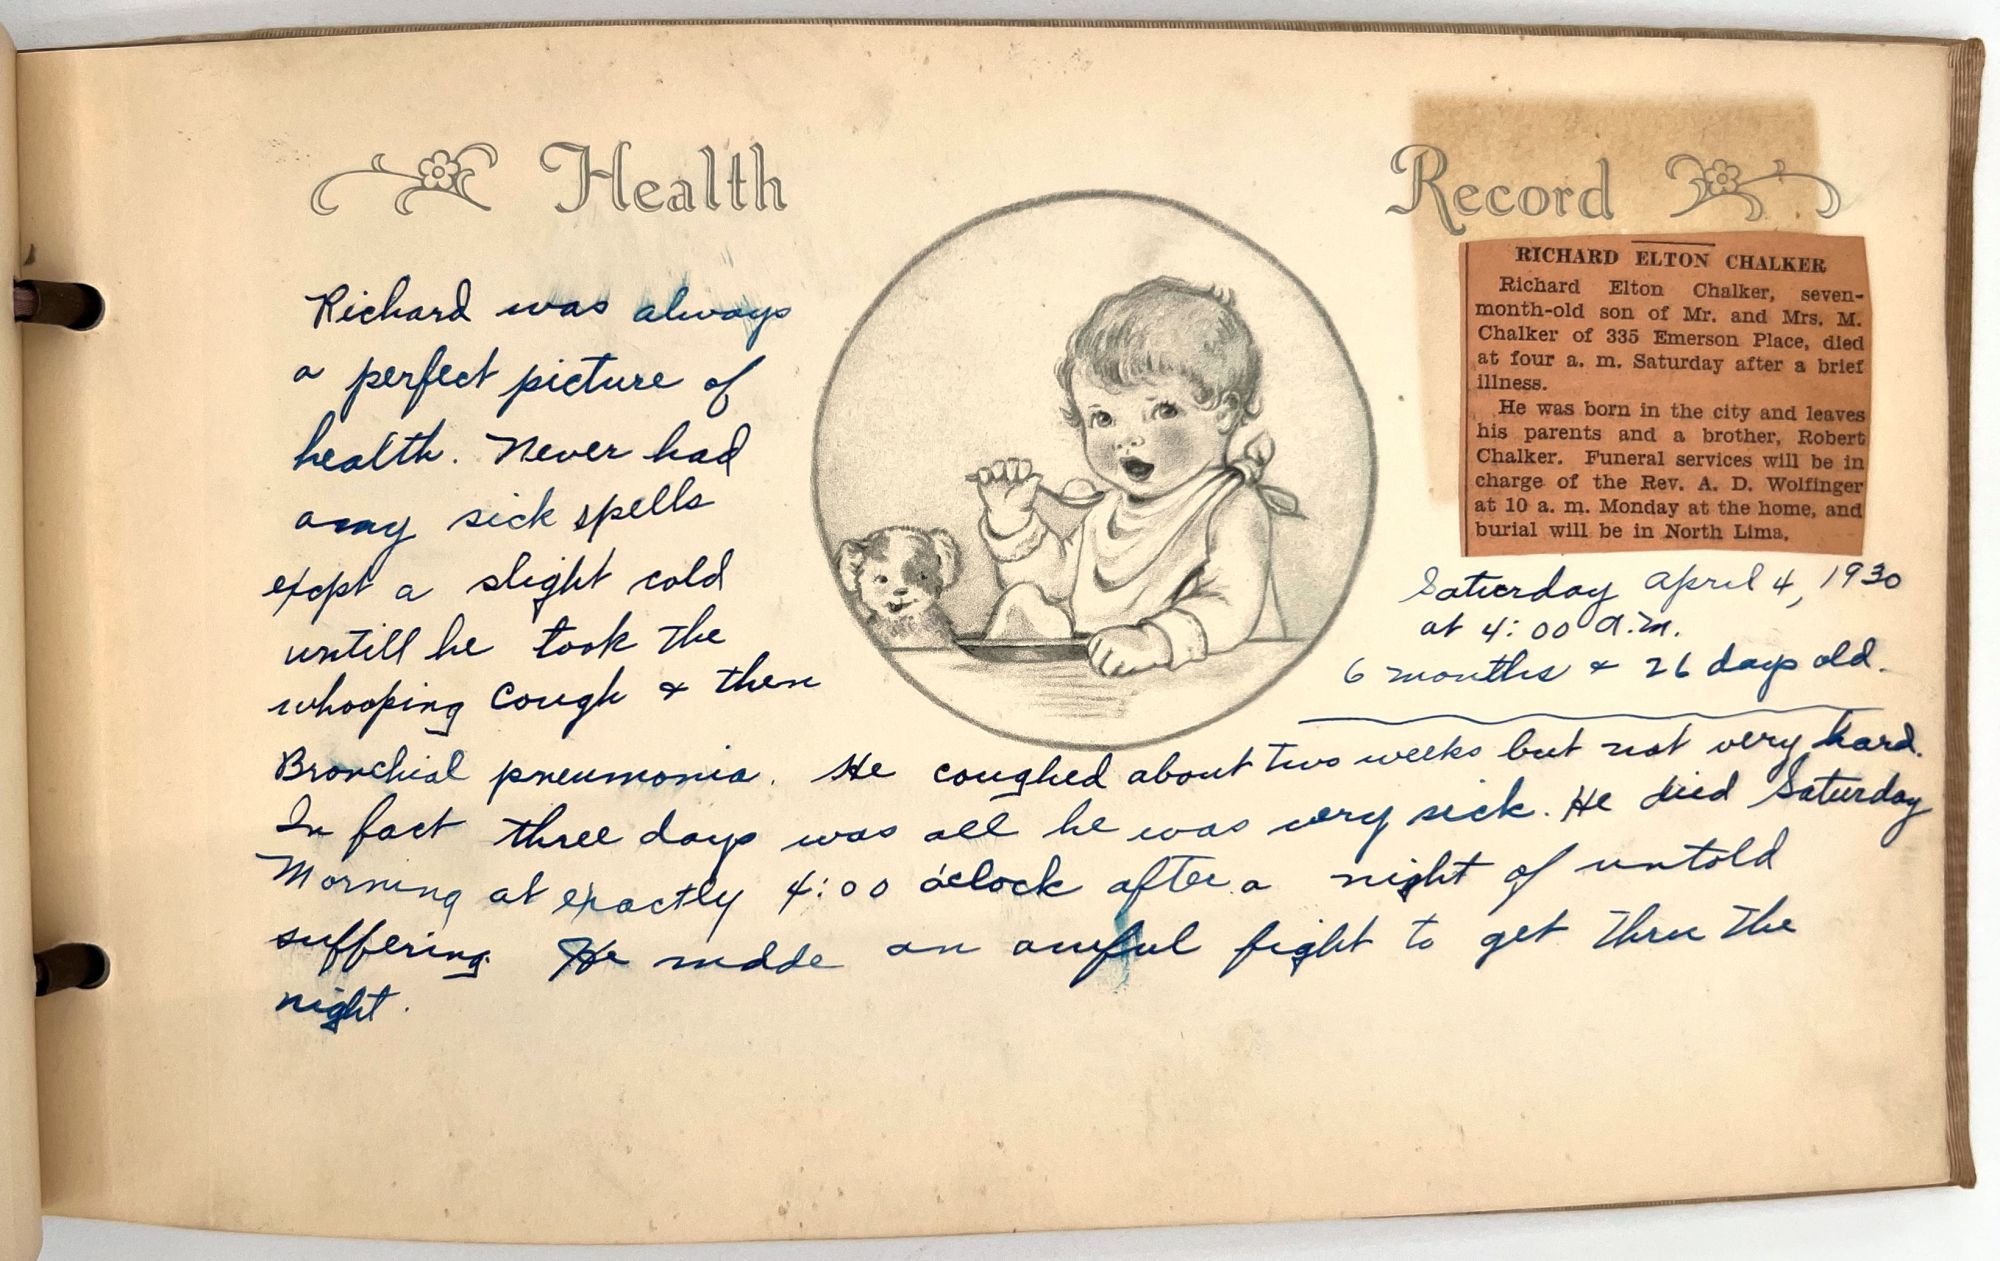 Health Record
Richard was always
a perfect picture of
health. Never had
any sick spells
exept a slight cold
untill he took the
whooping cough & then
Bronchial pneumonia. He coughed about two weeks but not very hard.
In fact three days was all he was very sick. He died Saturday
Morning at exactly 4:00 o'clock after a night of untold
suffering. He made an awful fight to get thru the
night.
RICHARD ELTON CHALKER
Richard Elton Chalker, seven-
month-old son of Mr. and Mrs. M.
Chalker of 335 Emerson Place, died
at four a. m. Saturday after a brief
illness.
He was born in the city and leaves
his parents and a brother, Robert
Chalker. Funeral services will be in
charge of the Rev. A. D. Wolfinger
at 10 a. m. Monday at the home, and
burial will be in North Lima.
Saturday April 4, 1930
at 4:00 a.m.
6 months & 26 days old.